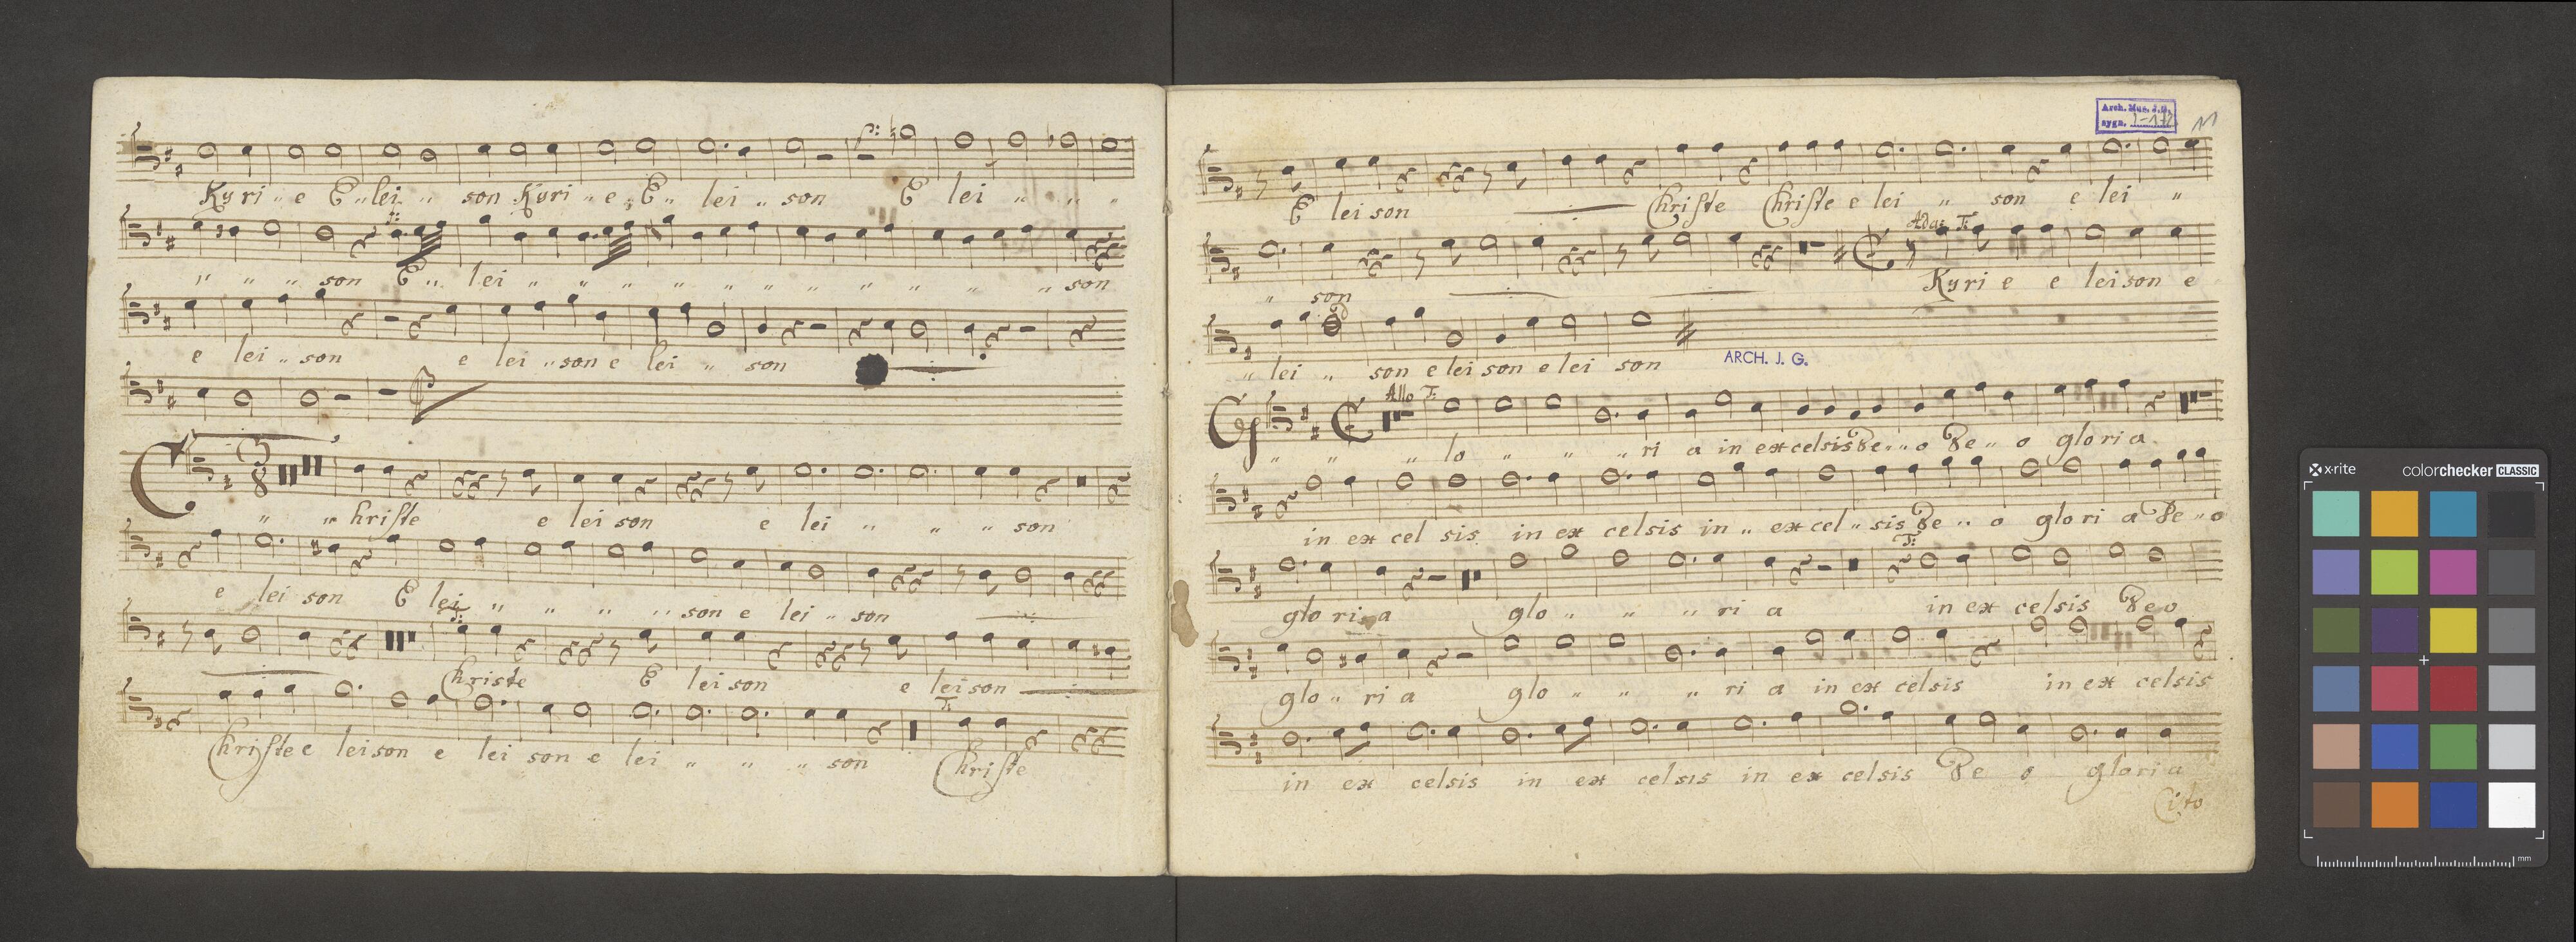 Kyri „ e E „ lei „ son Kyri „ e „ E „ lei „ son E lei „ „ „
„ „ „ son E „ lei „ „ „ „ „ „ „ „ „ „ son
e lei „ son e lei „ son e lei „ son
C 3/8
„ „ hriste e lei son e lei „ „ „ son
e lei son E lei „ „ „ „ son e lei „ son
Christe E lei son e lei son
T:
Christe e leison e lei son e lei „ „ „ son Christe
Arch. Muz. J.G.
sygn. I-172
11
E lei son Christe Christe e lei „ son e lei „
Ada: T:
„ son Kyri e e lei son e
„ lei „ son e lei son e lei son
ARCH. J. G.
Allo T:
„ „ „ lo „ „ „ ri a in excelsis De „ o De „ o gloria
in ex cel sis in ex celsis in „ ex cel „ sis De „ o glo ri a De „ o
T:
glo ri a glo „ „ „ ri a in ex celsis Deo
glo „ ri a glo „ „ „ ri a in ex celsis in ex celsis
in ex celsis in ex celsis in ex celsis De o gloria
Cito
x-rite
colorchecker CLASSIC
mm